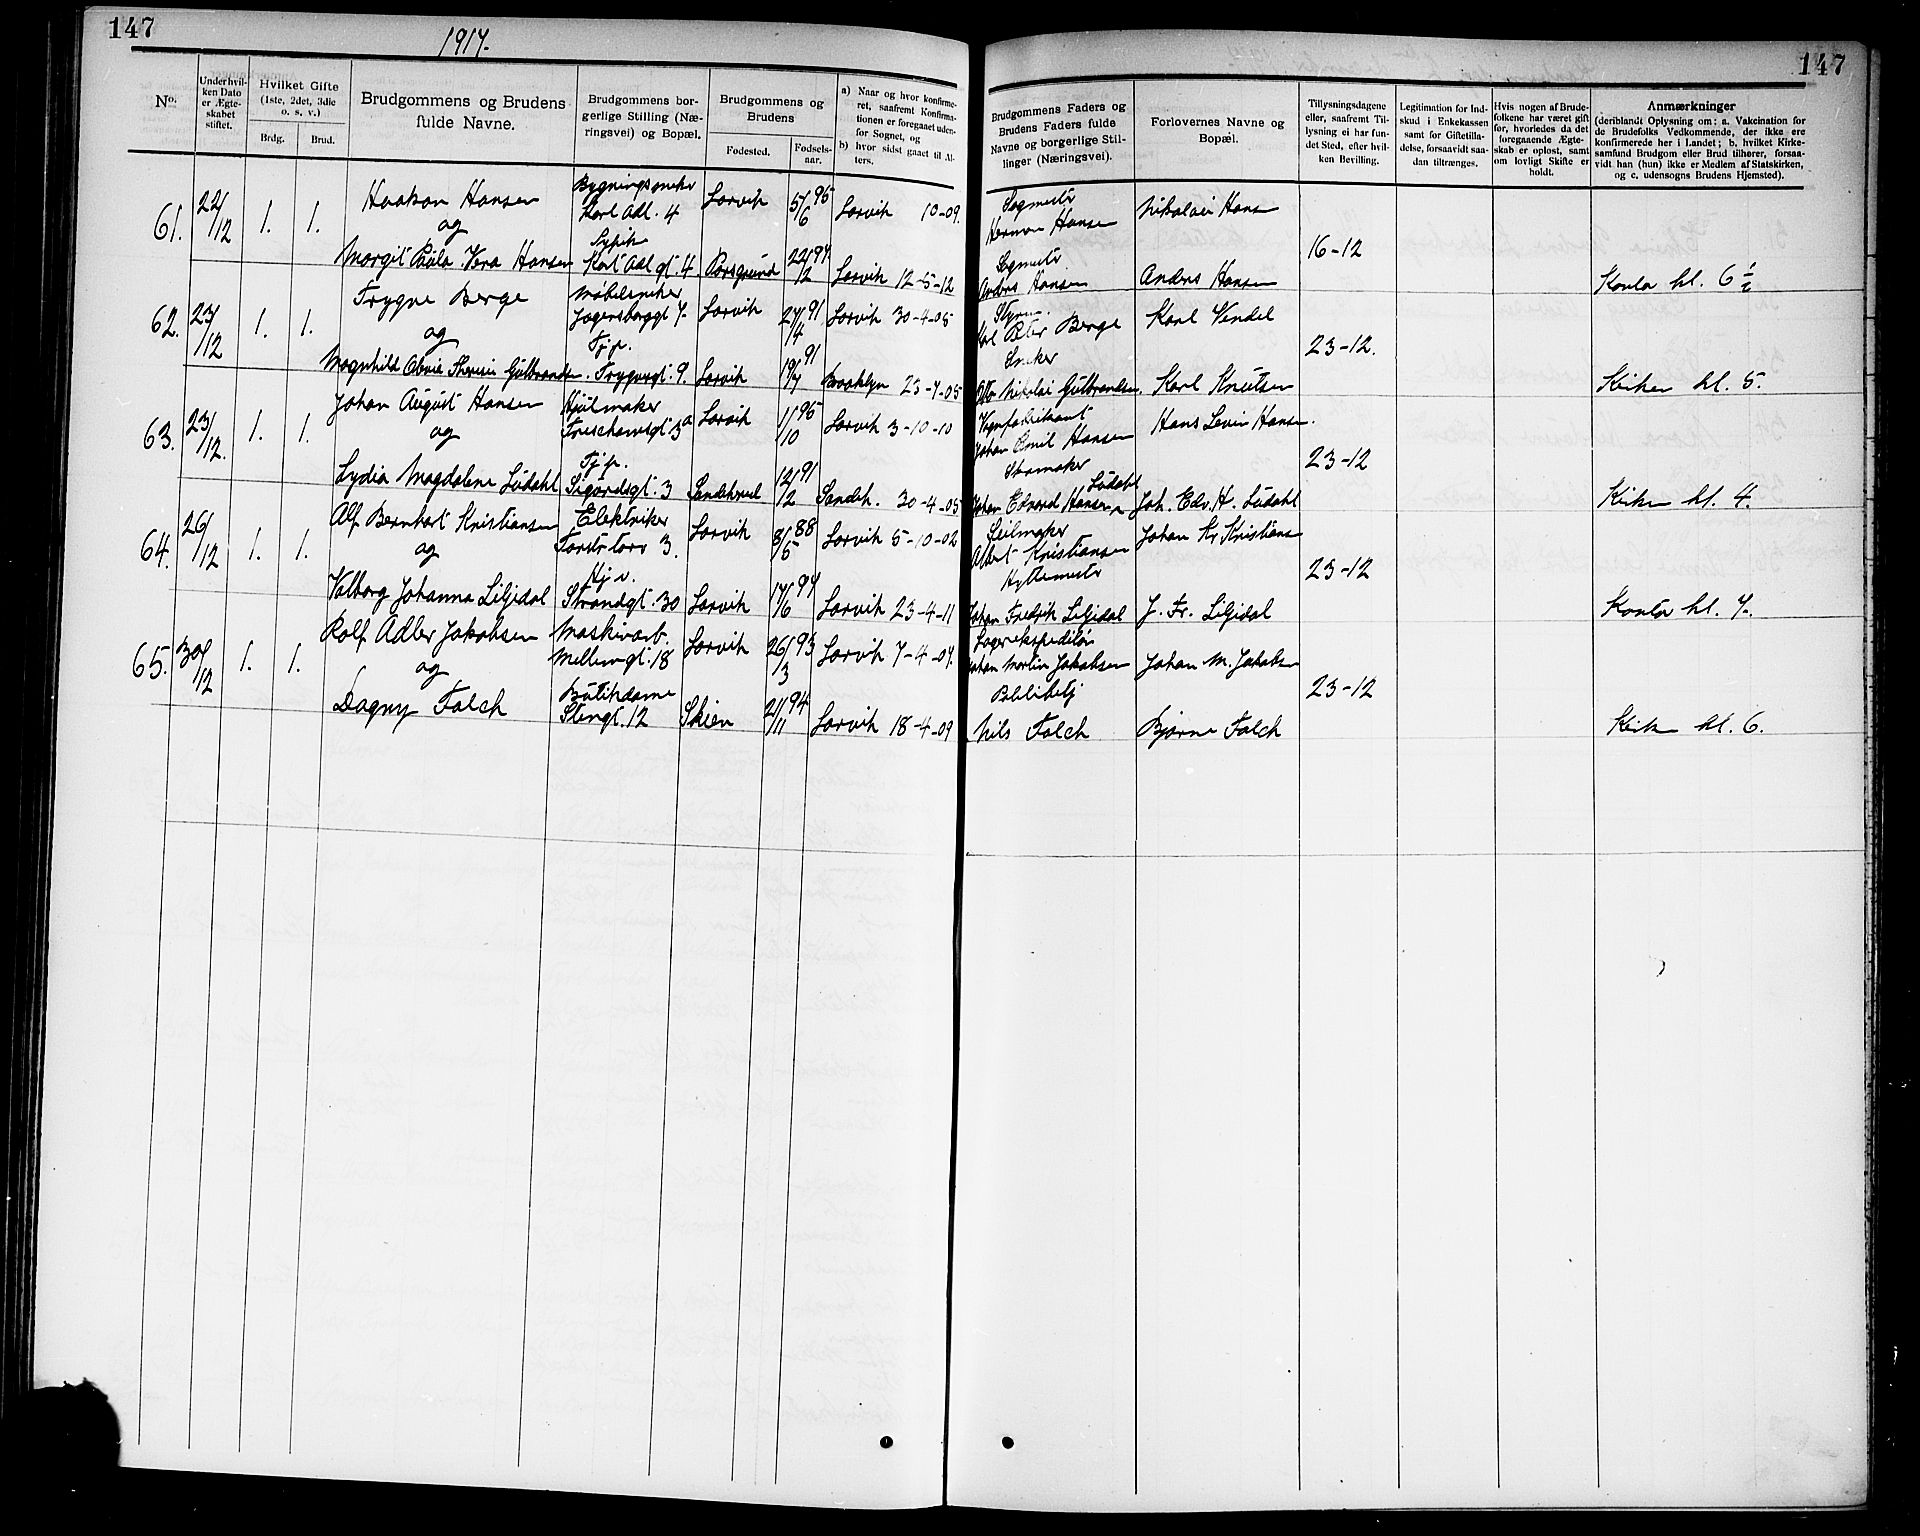 147
1917.
147
No.
Under hvil-
ken Dato
er Ægte-
skabet
stiftet.
Hvilket Gifte
(1ste, 2det, 3die
o. s. v.)
Brdg.
Brud.
Brudgommens og Brudens
fulde Navne.
Brudgommens bor-
gerlige Stilling (Næ-
ringsvei) og Bopæl.
Brudgommens og
Brudens
Fødested.
Fødsels-
aar.
a) Naar og hvor konfirme-
ret, saafremt Konfirma-
tionen er foregaaet uden-
for Sognet, og
b) hvor sidst gaaet til Al-
ters.
Brudgommens Faders og
Brudens Faders fulde
Navne og borgerlige Stil-
linger (Næringsvei).
Forlovernes Navne og
Bopæl.
Tillysningsdagene
eller, saafremt Til-
lysning ei har fun-
det Sted, efter hvil-
ken Bevilling.
Legitimation for Ind-
skud i Enkekassen
samt for Giftetilla-
delse, forsaavidt saa-
dan tiltrænges.
Hvis nogen af Brude-
folkene har været gift
før, hvorledes da det
foregaaende Ægte-
skab er opløst, samt
om lovligt Skifte er
holdt.
Anmærkninger
(deriblandt Oplysning om: a. Vakcination for
de Brudefolks Vedkommende, der ikke ere
konfirmerede her i Landet; b, hvilket Kirke-
samfund Brudgom eller Brud tilhører, forsaa-
vidt han (hun) ikke er Medlem af Statskirken,
og c, udensogns Brudens Hjemsted).
61. 22/12 1. 1. Haakon Hansen Karl Adl. 4 Larvik 5/6 95 Larvik 10-09. Herman Hansen Nikolai Hansen
og
Margit Paula Vera Hansen Karl Adl gt. 4 Porsgrund 22/12 94 Larvik 12-5-12 Anders Hansen Anders Hansen 16-12 Kontor kl. 6 1/2
62. 23/12 1. 1. Trygve Berge Møbelsneker Larvik 27/4 91 Larvik 30-4-05 Peter Berge Karl Vendel
og
Tjp.
Sneker
Gulbrandsen. Trygvegt. 9. Larvik 19/7 91 Brooklyn 23-7-05 Nikolai Gulbrandsen. Karl Knutsen 23-12. Kirken kl. 5.
63. 23/12. 1. 1. Johan August Hansen Hjulmaker Larvik 11/10 95 Larvik 3-10-10 Johan Emil Hansen Hans Levin Hansen.
og
Tjp.
Skomaker
Lydia Magdalene Lüdahl Sigurdsgt. 3 Sandeherred 12/2 91 Sandeh. 30-4-05 Johan Edvard Hansen Lüdahl Joh. Edv. H. Lüdahl 23-12 Kirken kl. 4.
64. 26/12 1. 1. Alf Bernhart Kristiansen Elektriker Torstr torv 3. Larvik 8/5 88 Larvik 5-10-02 Seilmaker Albert Kristiansen Johan Kr Kristiansen
og
Hj v.
Hyttemester
Valborg Johanna Liljedal Strandgt. 30 Larvik 17/6 94 Larvik 23-4-11 Johan Fredrik Liljedal J. Fr. Liljedal 23-12 Kontor kl. 7.
65. 30/12 1. 1. Rolf Adler Jakobsen Maskinarb. Mellemgt. 18 Larvik 26/3 93 Larvik 7-4-07. Lagerekspeditør Johan Martin Jakobsen Johan M. Jakobsen
og
Butikdame
Dagny Falch Stengt. 12 Skien 21/11 94 Larvik 18-4-09 Nils Falch Bjarne Falch 23-12 Kirken kl. 6.